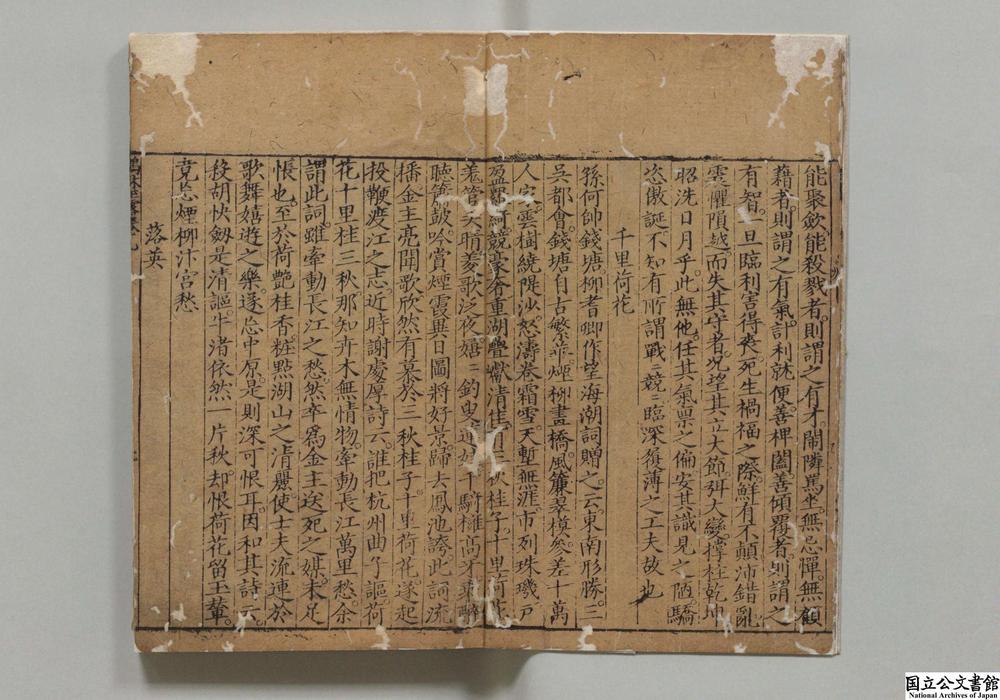 能聚歛能殺戮者則謂之有才鬧隣罵坐無忌憚無顧
藉者則謂之有氣計利就便善捭闔善傾覆者則謂之
有智一旦臨利害得喪死生禍福之際鮮有不顛沛錯亂
震懼隕越而失其守者况望其立大節弭大變撑柱乾坤
昭洗日月乎此無他任其氣禀之偏安其識見之陋驕
恣傲誕不知有所謂戰〻競〻臨深履薄之工夫故也
千里荷花
孫何帥錢塘柳耆卿作望海潮詞贈之云東南形勝三
吳都會錢塘自古繁華煙柳畫橋風簾翠模參差十萬
人家雲樹繞隄沙怒濤卷霜雪天塹無涯市列珠璣戶
盈羅綺競豪奢重湖疊巘清佳有三秋桂子十里荷花
羗管弄晴菱歌泛夜嬉〻釣叟蓮娃千騎擁高牙乘醉
聽簫鼓吟賞煙霞異日圖將好景歸去鳳池誇此詞流
播金主亮聞歌欣然有慕於三秋桂子十里荷花遂起
投鞭渡江之志近時謝處厚詩云誰把杭州曲子謳荷
花十里桂三秋那知卉木無情物牽動長江萬里愁余
謂此詞雖牽動長江之愁然卒爲金主送死之媒未足
恨也至於荷艷桂香粧點湖山之清麗使士夫流連於
歌舞嬉遊之樂遂忘中原是則深可恨耳因和其詩云
殺胡快劔是清謳牛渚依然一片秋却恨荷花留玉輦
竟忘煙柳汴宮愁
落英